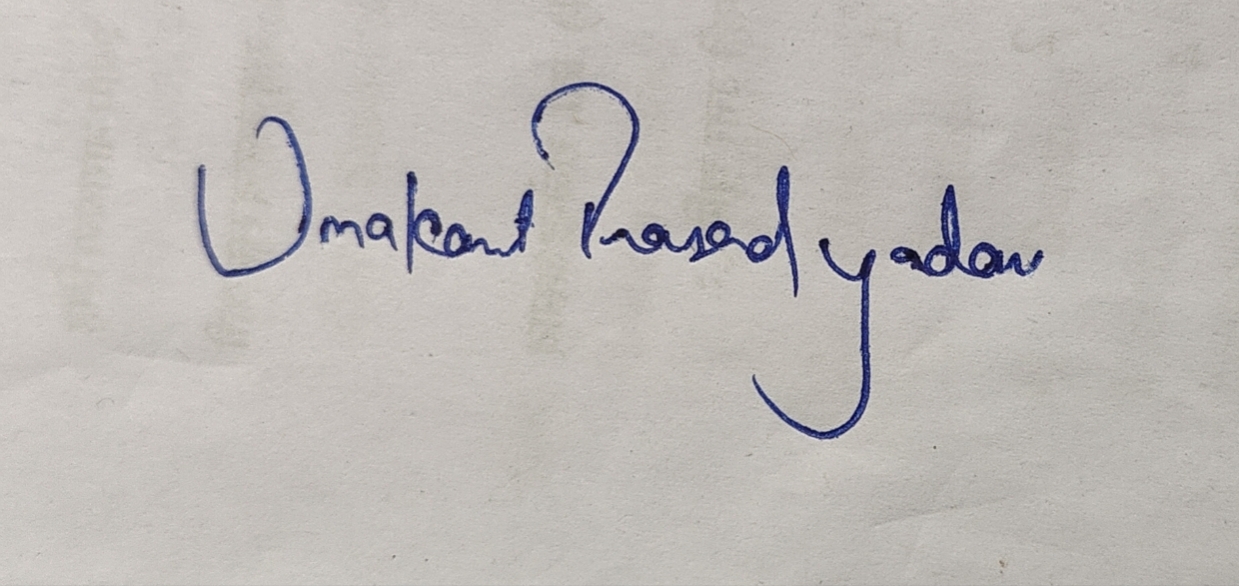 Umakant Prasad yadav